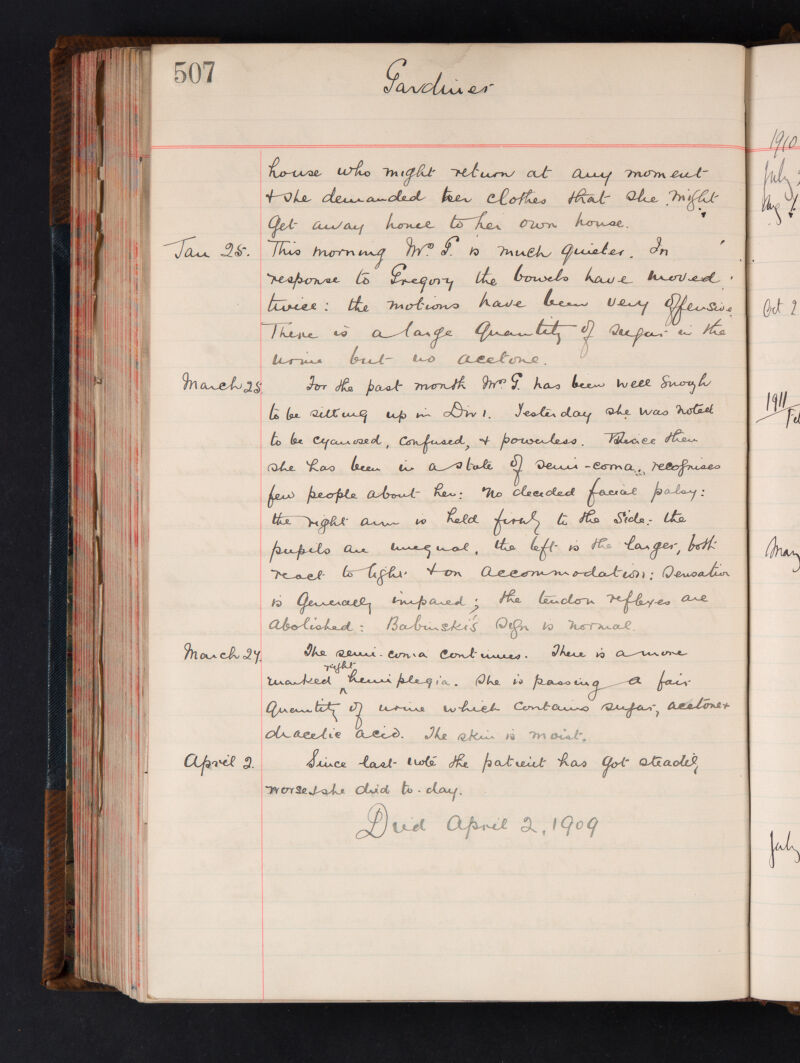 507
Gardiner
house who might return at any moment
& she demanded her clothes that she might
get away home to her own house.
Jan 25. This morning Mrs G. is much quieter. In
response to Gregory the bowels have moved
twice: the motions have been very offensive.
There is a large quantity of sugar in the
urine but no acetone.
March 25. For the past month Mrs G. has been well enough
to be sitting up in Div 1. Yesterday she was noted
to be cyanosed, confused, & powerless. Since then
she has been in a state of semi-coma, recognises
few people about her: no decided facial palsy:
the right arm is held firmly to the side: the
pupils are unequal, the left is the larger, both
react to light & on accommodation: Sensation
is generally impaired; the tendon reflexes are
abolished: Babinski's sign is normal.
March 27. The semi-coma continues. There is a more
marked right hemiplegia. She is passing a fair
quantity of urine which contains sugar, acetone &
diacetic acid. The skin is moist.
April 2. Since last note the patient has got steadily
worse & she died to-day.
Died April 2, 1909
1910
July
Aug
Oct 2
1911
Feb
May
July